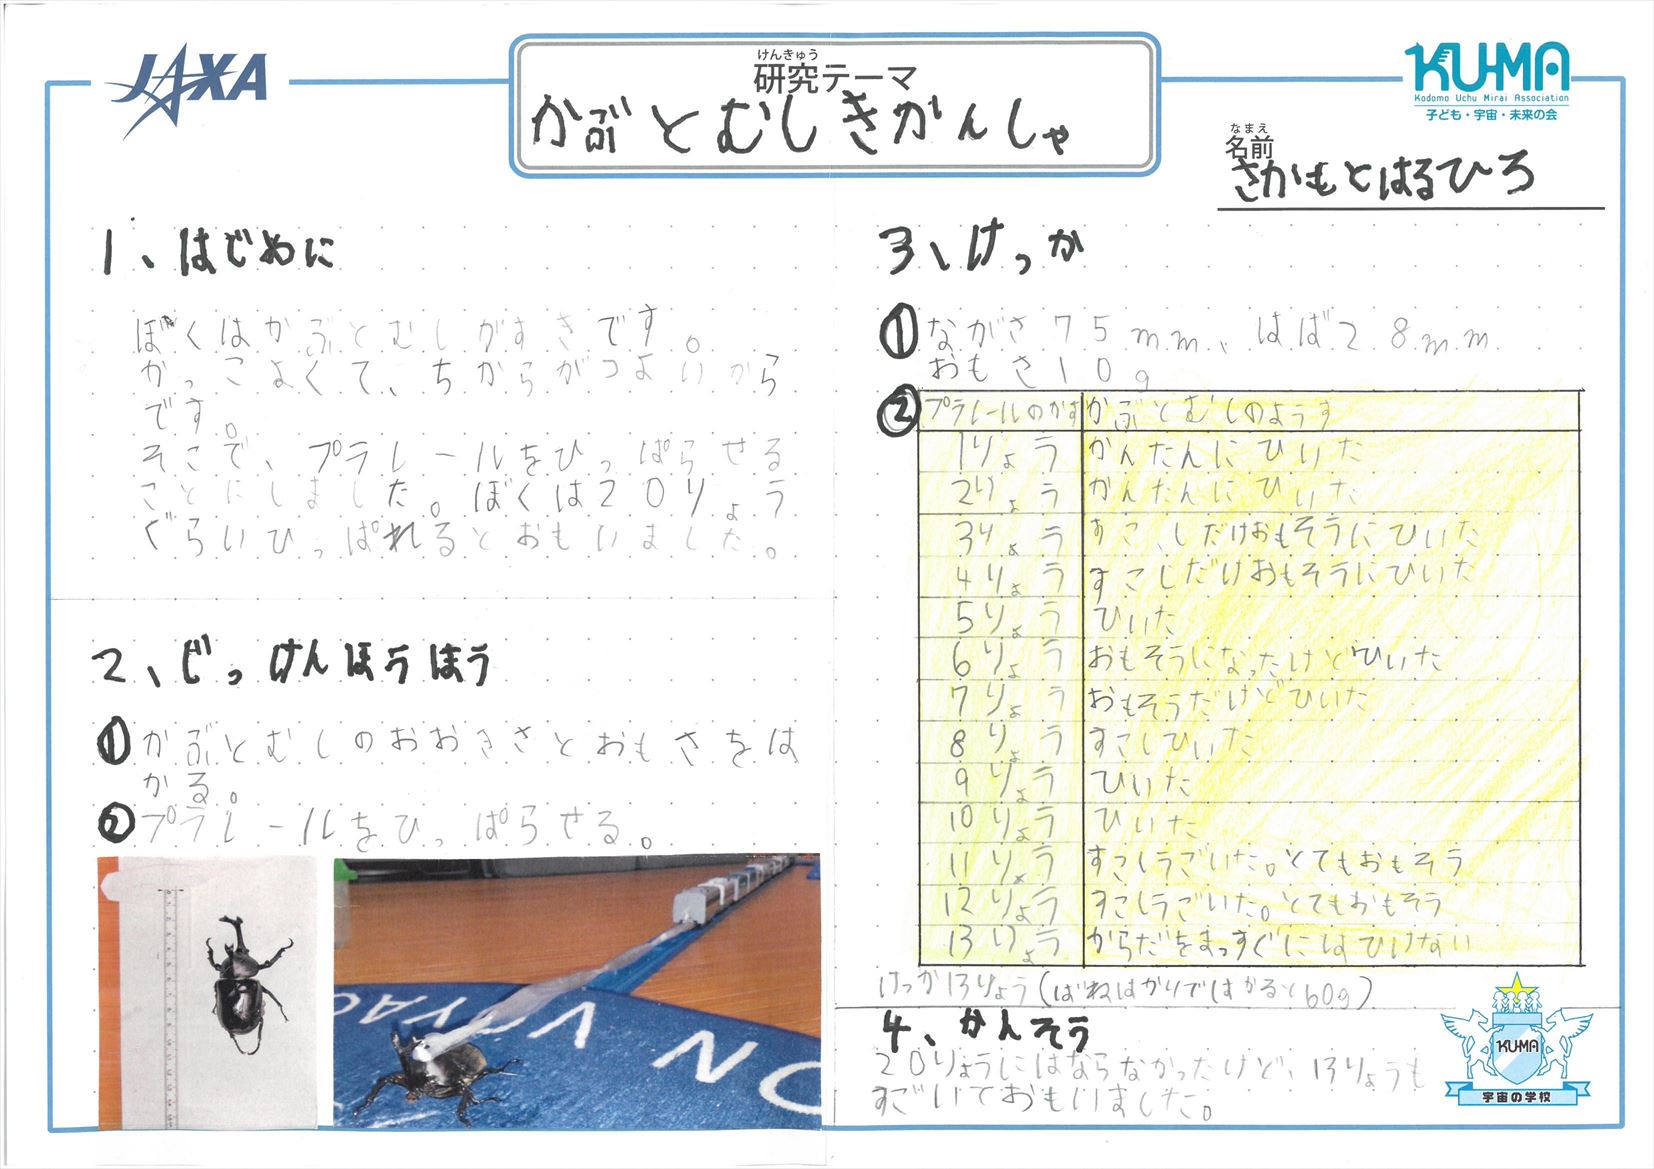 JAXA
けんきゅう
研究テーマ
かぶとむしきかんしゃ
KU-MA
Kodomo Uchu Mirai Association
子ども・宇宙・未来の会
なまえ
名前
さかもとはるひろ
1、はじめに
ぼくはかぶとむしがすきです。
かっこよくて、ちからがつよいから
です。
そこで、プラレールをひっぱらせる
ことにしました。ぼくは20りょう
ぐらいひっぱれるとおもいました。
2、じっけんほうほう
①かぶとむしのおおきさとおもさをは
かる。
②プラレールをひっぱらせる。
VOYAG
N
3、けっか
①ながさ75mm、はば28mm
おもさ10g
②プラレールのかず かぶとむしのようす
1りょう かんたんにひいた
2りょう かんたんにひいた
3りょう すこしだけおもそうにひいた
4りょう すこしだけおもそうにひいた
5りょう ひいた
6りょう おもそうになったけどひいた
7りょう おもそうだけどひいた
8りょう すこしひいた
9りょう ひいた
10りょう ひいた
11りょう すこしうごいた。とてもおもそう
12りょう すこしうごいた。とてもおもそう
13りょう からだをまっすぐにはひけない
けっか13りょう(ばねはかりではかると60g)
4、かんそう
20りょうにはならなかったけど、13りょうも
すごいておもいました。
KU-MA
宇宙の学校